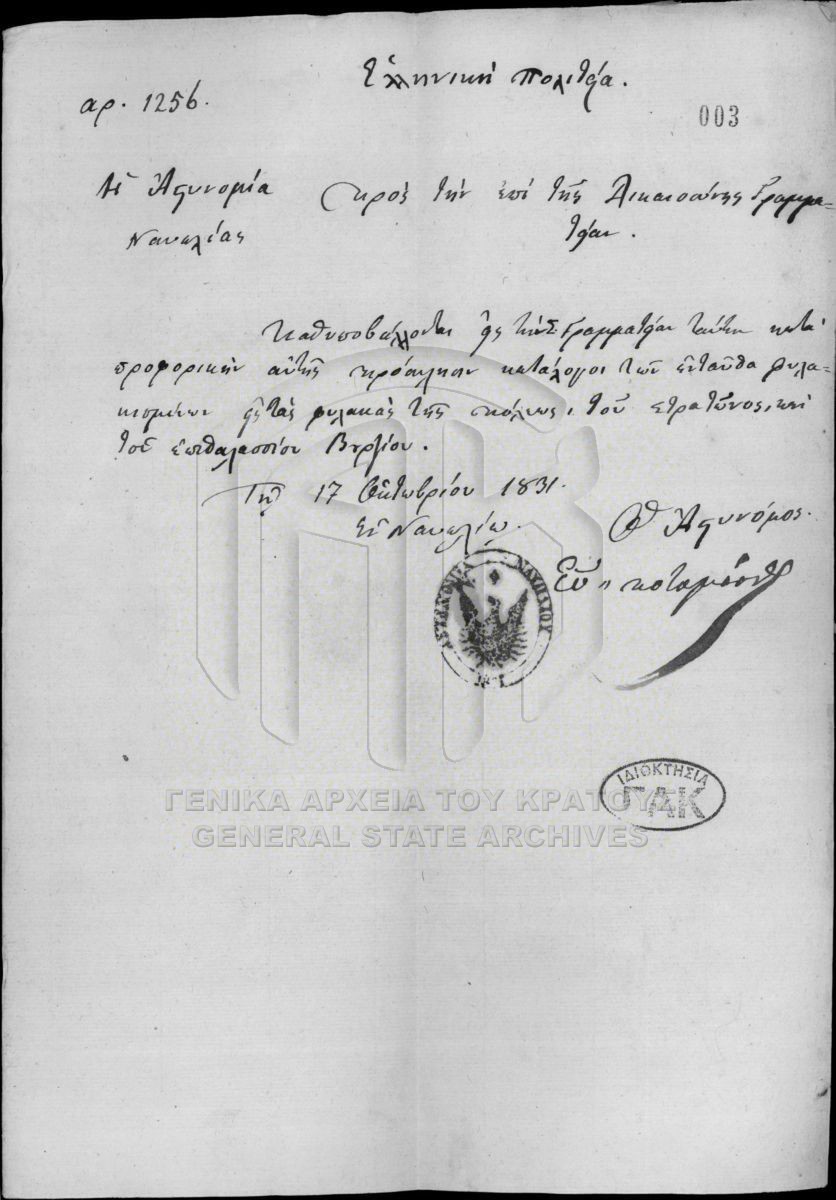 Ἑλληνικὴ Πολιτεία.
αρ. 1256.
003
Ἡ Ἀστυνομία
Ναυπλίας
πρὸς τὴν ἐπὶ τῆς Δικαιοσύνης Γραμμα-
τείαν.
Καθυποβάλλονται εἰς τὴν Σ. Γραμματείαν ταύτην κατὰ
προφορικὴν αὐτῆς πρόσκλησιν κατάλογοι τῶν ἐνταῦθα φυλα-
κισμένων εἰς τὰς φυλακὰς τῆς πόλεως, τοῦ στρατῶνος, καὶ
τοῦ ἐπιθαλασσίου Βυρζίου.
Τῇ 17 Ὀκτωβρίου 1831.
Ἐν Ναυπλίῳ.
Ὁ Ἀστυνόμος.
ΑΣΤΥΝΟΜΙΑ ΝΑΥΠΛΙΟΥ
ΙΔΙΟΚΤΗΣΙΑ
ΓΑΚ
ΓΕΝΙΚΑ ΑΡΧΕΙΑ ΤΟΥ ΚΡΑΤΟΥΣ
GENERAL STATE ARCHIVES